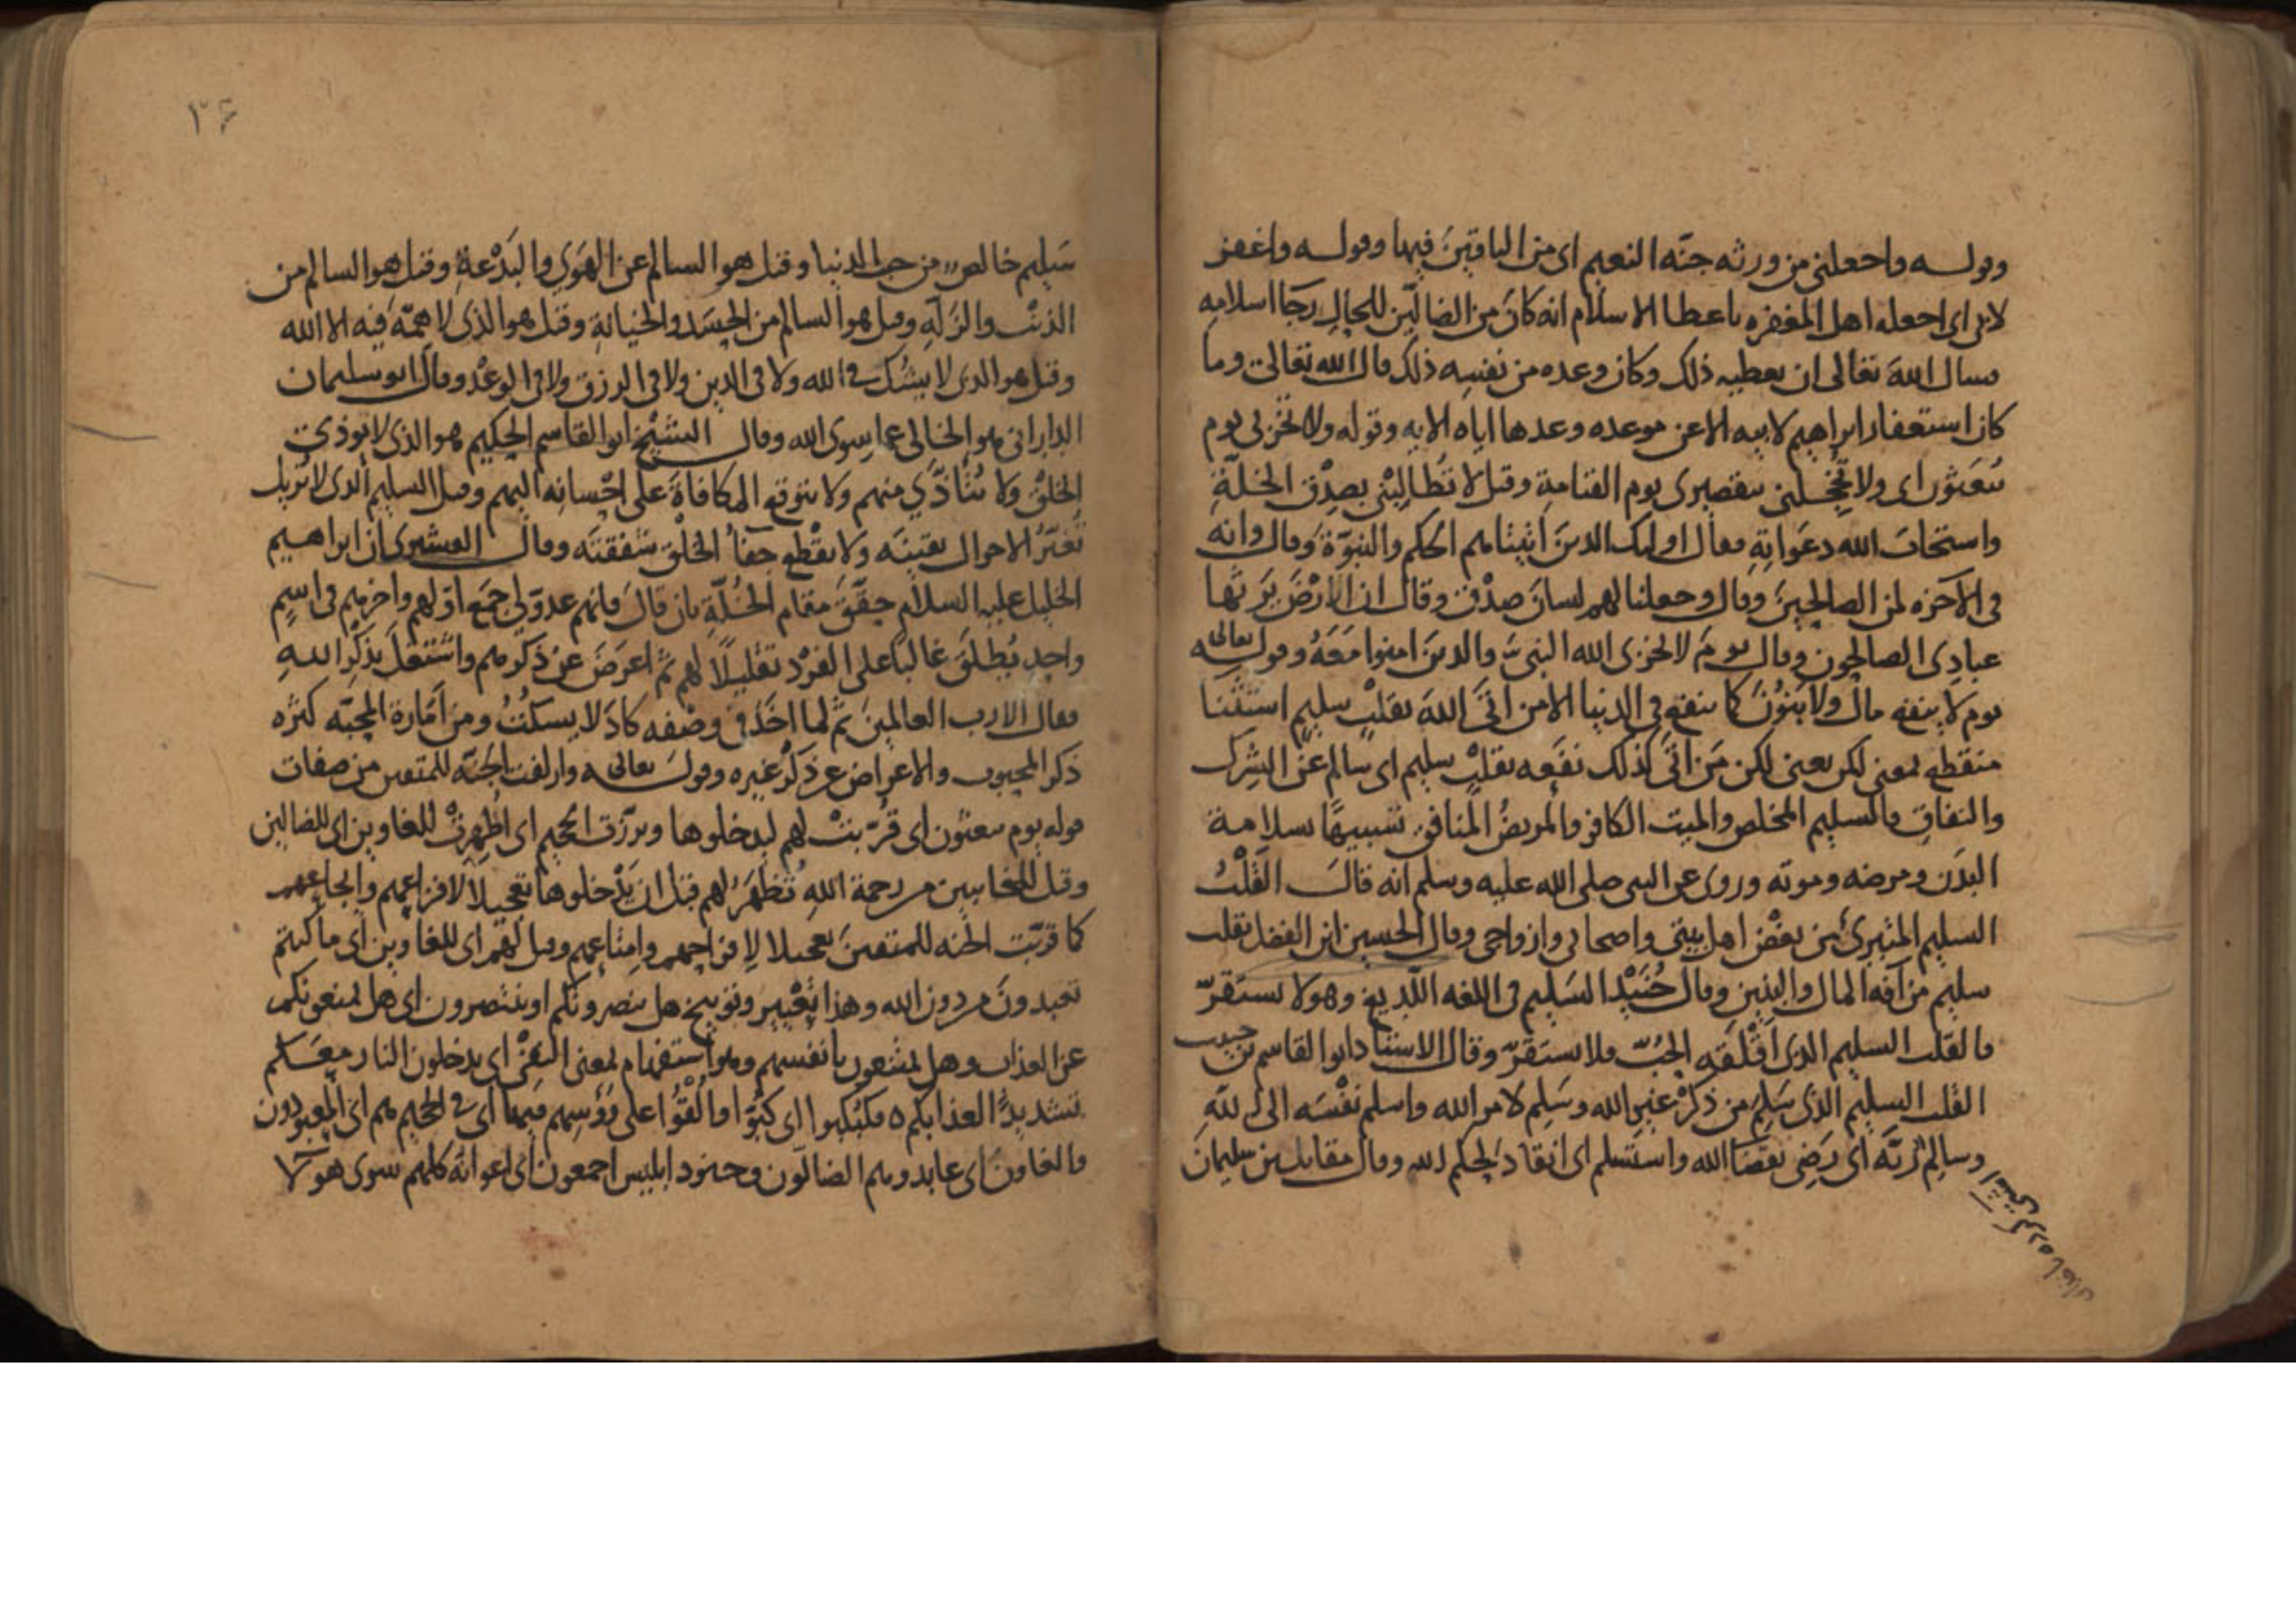 وقوله واجعلني من ورثه جنّه النعيم اى من الباقينَ فيها وقوله واغفر
لابى اى اجعله اهل المغفره باعطا الاسلام انه كانَ من الضالّين للحال رجَا اسلامِه
فسال اللهَ تعَالى ان يعطيه ذلك وكان وعده من نفسِه ذلك قال الله تعَالى وما
كان استغفار ابراهيم لابيه الا عن موعده وعدها اياه الايه وقوله ولا تخزنى يوم
يُبعَثون اى ولا تُخجلنى بتقصيرى يوم القيامةِ وقيل لا تُطالِبْنى بصِدْق الخلّةِ
واستجابَ الله دعَواتِهِ فقال اوليك الذينَ اتيناهم الحكم والنبوّة وقال وانه
فى الآخره لمن الصالحينَ وقال وجعلنا لهم لسانَ صدْق وقال ان الارْضَ يَرثها
عبادِى الصالحون وقال يومَ لا يخزى الله النبىّ والذينَ امنوا مَعَهُ وقوله تعالى
يوم لا ينفع مال ولا بَنُونَ كما ينفع فى الدنيا الا من اتَى اللهَ بقلبٍ سليم استثنا
منقطع بمعنى لكن يعنى لكن مَن اتى كذلك نفَعه بقلبٍ سليم اى سالم عن الشرك
والنفاقِ فالسليم المخلص والميت الكافر والمريضُ المنافق تشبيهًا بسلامة
البدَن ومرضه وموته وروى عن النبى صلى الله عليه وسلم انه قالَ القَلْبُ
السليم المتبرئ من بغْض اهل بيتى واصحابى وازواجى وقال الحسين ابن الفضل بقلب
سليم من آفه المال والبنين وقال جُنَيْد السَليم فى اللغه اللّديغ وهو لا يستقرّ
فالقلب السليم الذى اَقْلَقَه الحُبّ فلا يستقرّ وقال الاستاد ابوا القاسم بن حبيب
القلب السليم الذى سَلِمَ من ذكرْ غيرِ الله وسَلِم لامر الله واسلم نفْسَه الى الله
وسالم رَبّه اى رَضِى بقضَا الله واستسلم اى انقاد لحكم الله وقال مقاتل بن سليمانَ
٣۶
سَليم خالص من حب الدنيا وقيل هو السالم عن الهوَى والبدْعةِ وقيل هو السالم من
الذنب والزلّةِ وقيل هو السالم من الحسَد والخيانةِ وقيل هو الذى لا هِمّة فيه الا الله
وقيل هو الذى لا يشك فى الله ولا فى الدين ولا فى الرزق ولا فى الوعْد وقال ابو سليمان
الدارانى هو الخالى عما سِوى الله وقال الشيْخ ابو القاسم الحكيم هو الذى لا يوذى
الخلقْ ولا يتأذّى منهم ولا يتوقع المكافاةَ على احْسانه اليهم وقيل السليم الذى لا تزيل
تغيّرُ الاحوال يقينَه ولا يقْطع جفآُ الخلْق شفقتَه وقال القشيرى ان ابراهيم
الخليل عليه السلام حقّقَ مقام الخُلّةِ بان قالَ فانهم عدوّ لى جمَع اوّلهم واخرهم فى اسمٍ
واحدٍ يُطلَق غالبًا على الفرْد تقليلًا لهم ثم اعرَضَ عن ذكرهم واشتغلَ بذكر اللهِ
فقال الا رب العالمينَ ثم لما اخذ فى وصْفه كادَ لا يسكتُ ومن اَمَارة المحبّه كثره
ذكر المحبوب والاعراض عن ذكْر غيره وقولَه تعالى وازلفت الجنّه للمتقين من صفات
قوله يوم يبعثون اى قُرّبتْ لهم ليدخلوها وبرّزت الجحيم اى اُظهِرتْ للغاوين اى للضالين
وقيل للخايبين من رحمة اللهِ تُظهَر لهم قبل ان يَدْخلوها تعجيلًا لافزاعهم وايجاعهم
كما قرّبت الجنه للمتقينَ تعجيلا لافراحهم وامتاعهم وقيل لهم اى للغاوين اى ما كنتم
تعبدونَ من دون الله وهذا تعْيير وتوبيخ هل ينصرونكم او ينتصرون اى هل يمنعونكم
عن العذاب وهل يمتنعون بانفسهم وهو استفهام لمعنى النفى اى يدخلون النار معَكم
تشديدًا لعذابكم فكُبكبوا اى كُبّوا والْقُوْا على رؤسِهم فيها اى فى الجحيم هم اى المعبودون
والغاون اى عابدوهم الضالّون وجنود ابليس اجمعون اى اعوانه كلهم سوى هولآ